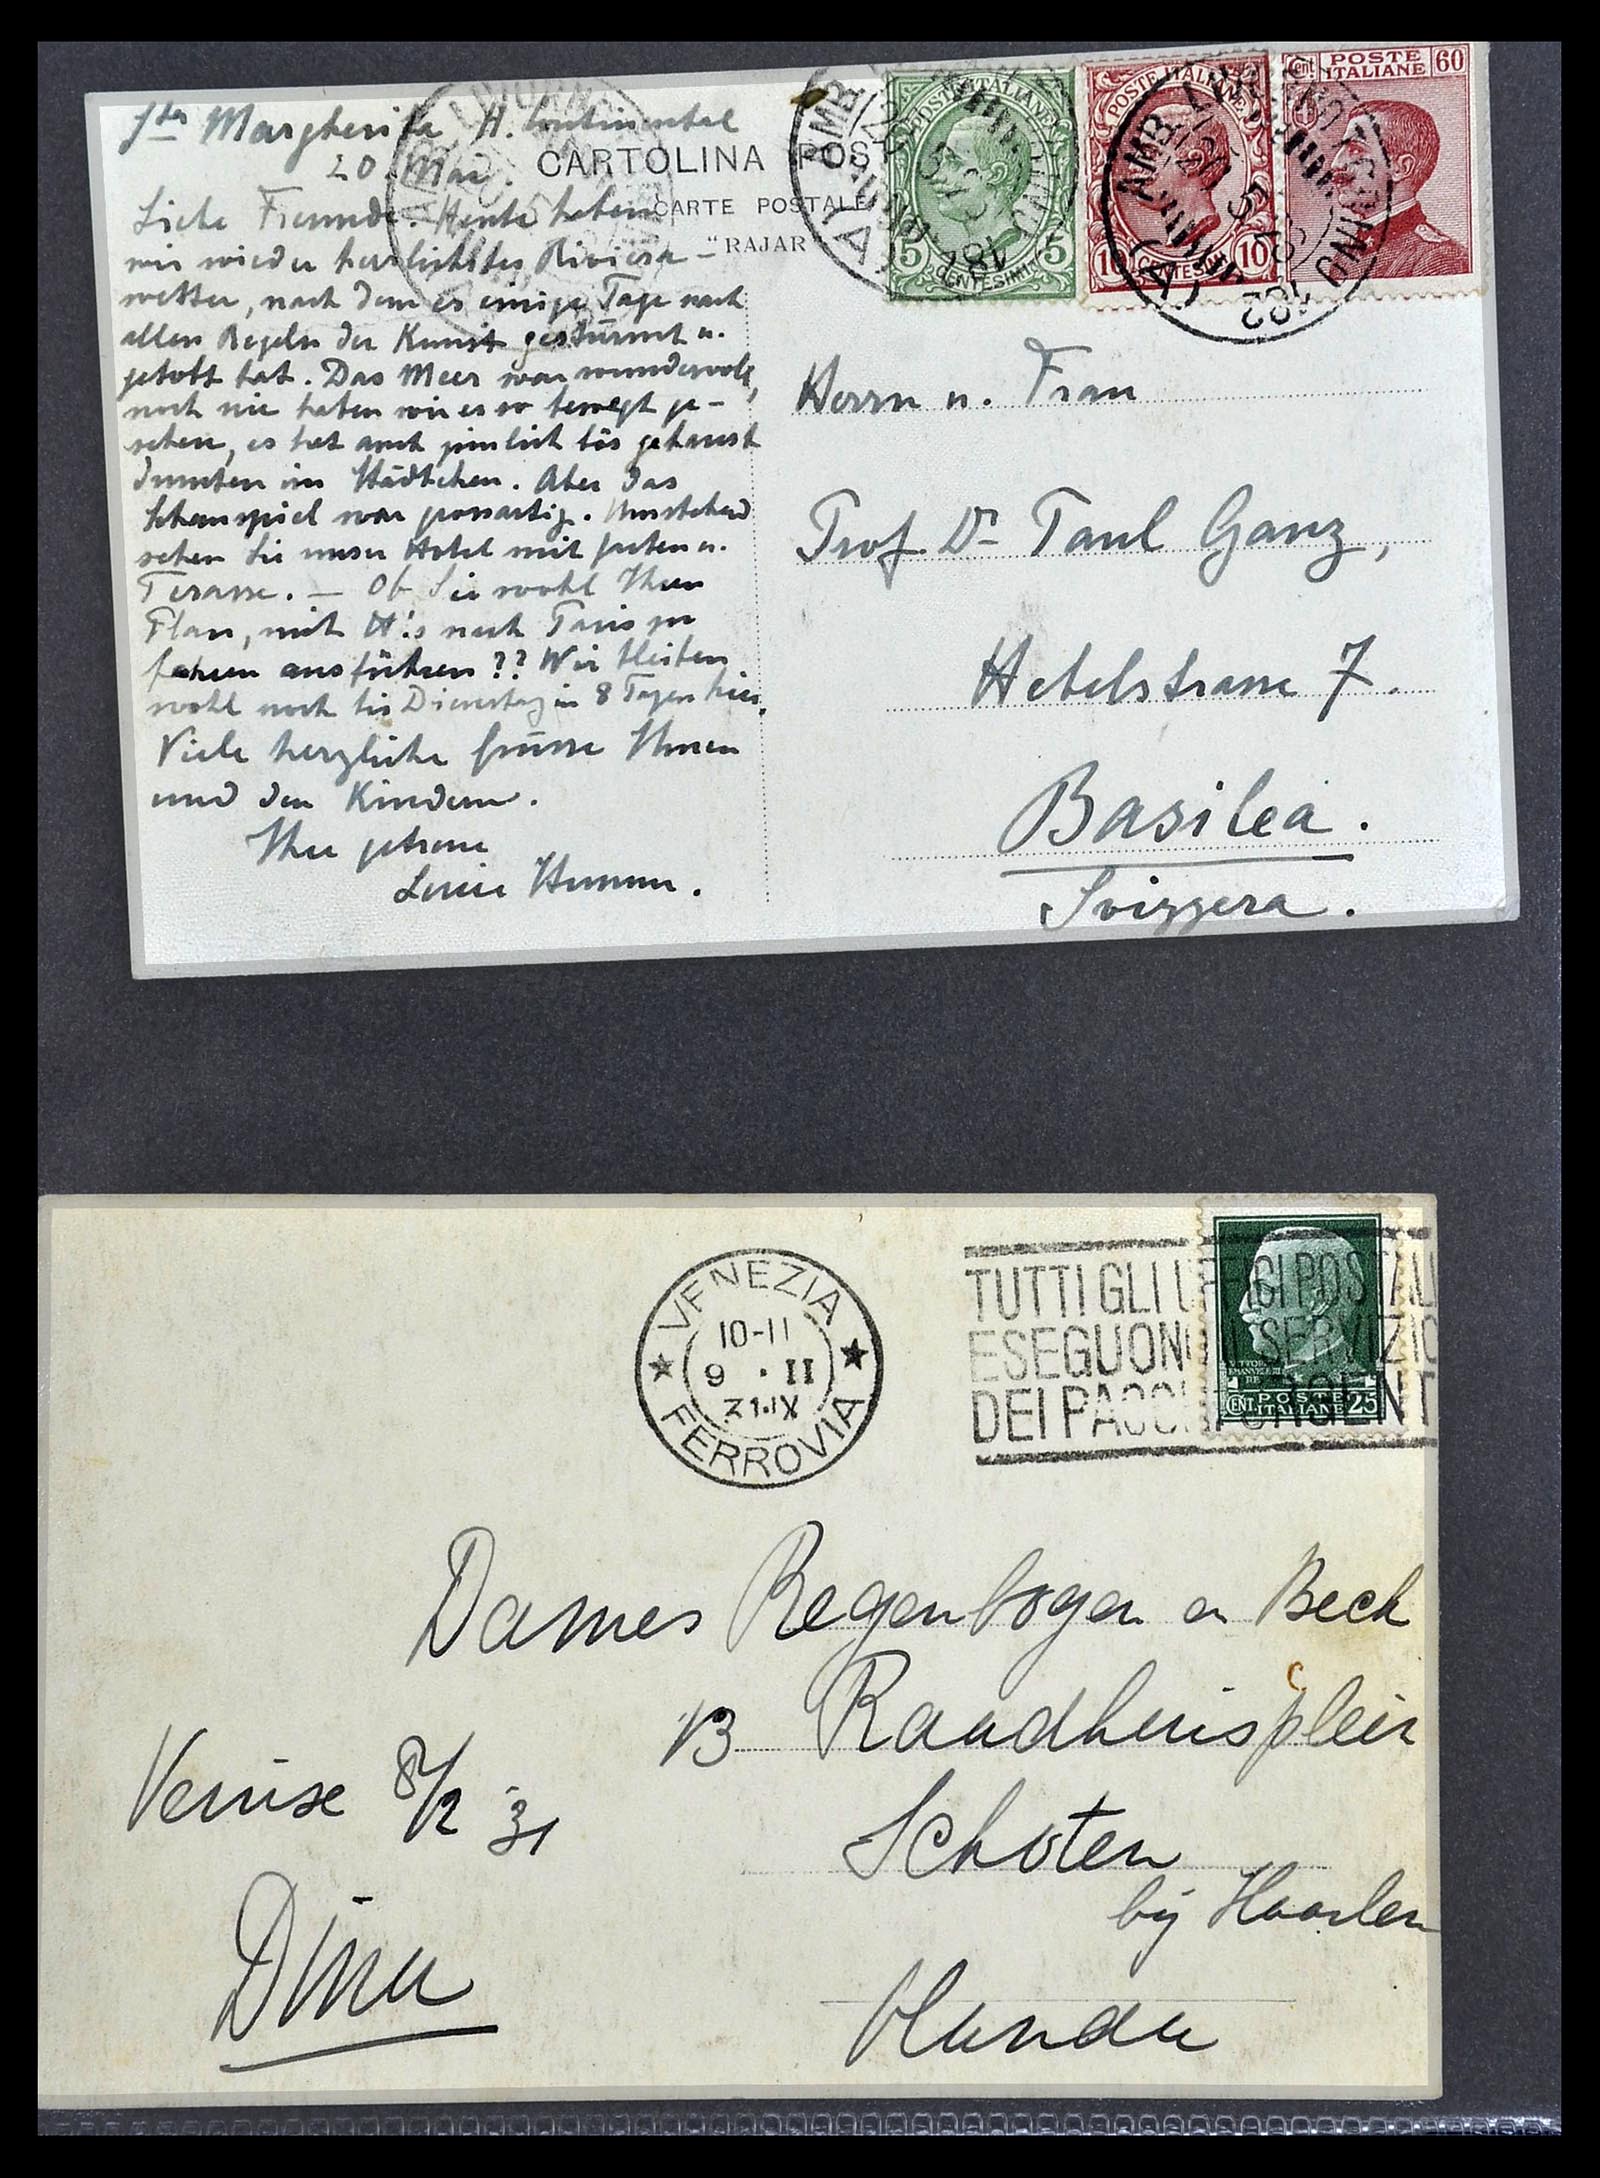 Sta Margherita H. Continental
20. Mai.
CARTOLINA POS
CARTE POSTALE
"RAJAR"
Liebe Freunde. Heute haben
wir wieder herrlichstes Riviera-
wetter, nach dem es einige Tage nach
allen Regeln der Kunst gestürmt u.
getobt hat. Das Meer war wundervoll,
noch nie haben wir es so bewegt ge-
sehen, es hat auch ziemlich bös gehaust
drunten im Städtchen. Aber das
Schauspiel war grossartig. Umstehend
sehen Sie unser Hotel mit Garten u.
Terasse. — Ob Sie wohl Ihren
Plan, mit H!s nach Paris zu
fahren ausführen?? Wir bleiben
wohl noch bis Dienstag in 8 Tagen hier.
Viele herzliche Grüsse Ihnen
und den Kindern.
Ihre getreue
POSTE ITALIANE
5 5
CENTESIMI
POSTE ITALIANE
10 10
CENTESIMI
POSTE 60
ITALIANE
AMB.
182
AMB. TORINO
182
Herrn u. Frau
Prof. Dr Paul Ganz,
Hebelstrasse 7.
Basilea.
Svizzera.
VENEZIA
10-11
9 . II
31.IX
FERROVIA
TUTTI GLI UFFICI POSTALI
ESEGUONO SERVIZIO
DEI PACCHI URGENTI
VITTORIO
EMANUELE III
RE
CENT. POSTE 25
ITALIANE
Dames Regenbogen en Beck
13 Raadhuisplein
Schoten
bij Haarlem
Olanda
Venise 8/2 31
Dina